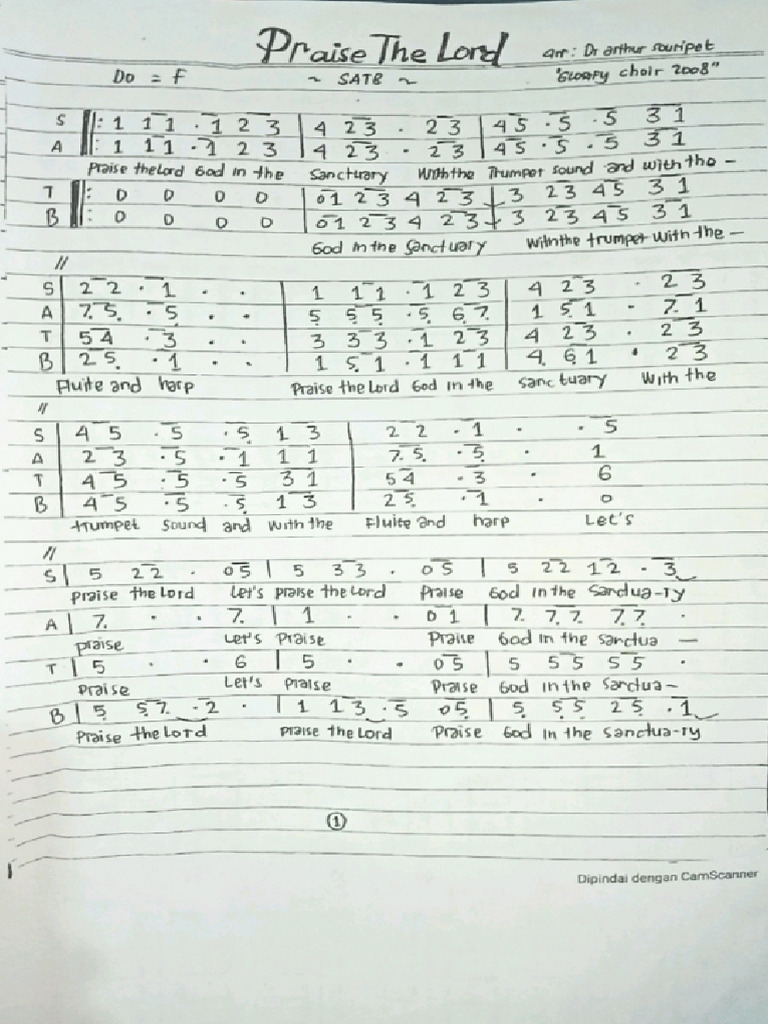 Praise The Lord
arr: Dr arthur souripet
Do = F
~ SATB ~
"GLORFY choir 2008"
S ‖: 1 1 1 1 . 1 2 3 | 4 2 3 . 2 3 | 4 5 . 5 . 5 3 1
A ‖: 1 1 1 1 . 1 2 3 | 4 2 3 . 2 3 | 4 5 . 5 . 5 3 1
Praise the Lord God in the Sanctuary With the Trumpet sound and with the –
T ‖: 0 0 0 0 | 0 1 2 3 4 2 3 | 3 2 3 4 5 3 1
B ‖: 0 0 0 0 | 0 1 2 3 4 2 3 | 3 2 3 4 5 3 1
God in the Sanctuary With the trumpet with the –
//
S | 2 2 . 1 . . | 1 1 1 . 1 2 3 | 4 2 3 . 2 3
A | 7 5 . 5 . . | 5 5 5 . 5 6 7 | 1 5 1 . 7 1
T | 5 4 . 3 . . | 3 3 3 . 1 2 3 | 4 2 3 . 2 3
B | 2 5 . 1 . . | 1 5 1 . 1 1 1 | 4 6 1 . 2 3
Fluite and harp Praise the Lord God in the sanctuary With the
//
S | 4 5 . 5 . 5 1 3 | 2 2 . 1 . . 5
A | 2 3 . 5 . 1 1 1 | 7 5 . 5 . 1
T | 4 5 . 5 . 5 3 1 | 5 4 . 3 . 6
B | 4 5 . 5 . 5 1 3 | 2 5 . 1 . 0
trumpet Sound and with the Fluite and harp Let's
//
S | 5 2 2 . 0 5 | 5 3 3 . 0 5 | 5 2 2 1 2 . 3
Praise the Lord Let's praise the Lord Praise God in the Sandua-ry
A | 7 . . 7 | 1 . . 0 1 | 7 7 7 7 7 .
praise Let's Praise Praise God in the sanctua –
T | 5 . . 6 | 5 . . 0 5 | 5 5 5 5 5 .
Praise Let's Praise Praise God in the Sandua –
B | 5 5 7 . 2 . | 1 1 3 . 5 0 5 | 5 5 5 2 5 . 1
Praise the Lord Praise the Lord Praise God in the Sanctua-ry
1
Dipindai dengan CamScanner